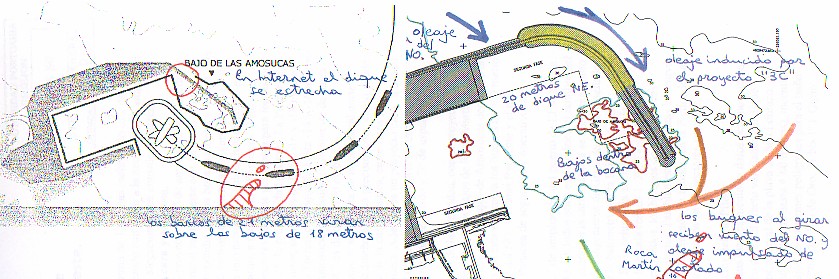 BAJO DE LAS AMOSUCAS
En Internet el dique
se estrecha
los barcos de 21 metros viran
sobre los bajos de 18 metros
oleaje
del
NO.
SEGUNDA FASE
20 metros
de dique N.E.
Bajos dentro
de la bocana
SEGUNDA FASE
oleaje inducido por
el proyecto "3C"
los buques al girar
reciben viento del NO. y
oleaje impulsado de
costado
Roca
Martí